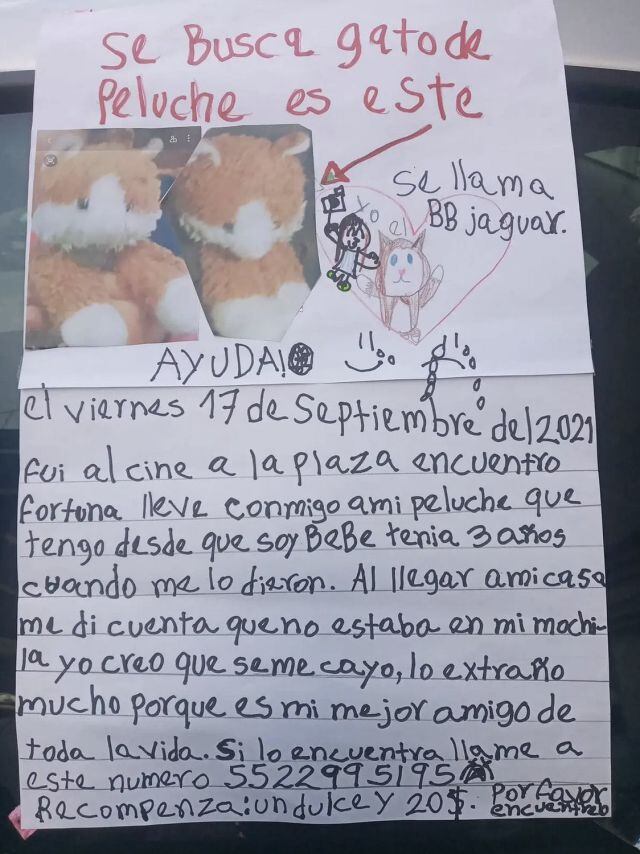 Se Busca gato de
Peluche es este
Se llama
BB jaguar.
Yo el
AYUDA!
el viernes 17 de Septiembre del 2021
fui al cine a la plaza encuentro
fortuna lleve conmigo ami peluche que
tengo desde que soy BeBe tenia 3 años
cuando me lo dieron. Al llegar amicasa
me di cuenta que no estaba en mi mochi-
la yo creo que seme cayo, lo extraño
mucho porque es mi mejor amigo de
toda la vida. Si lo encuentra llame a
este numero 5522995195
Recompenza: un dulce y 20$. Por favor
encuentrelo